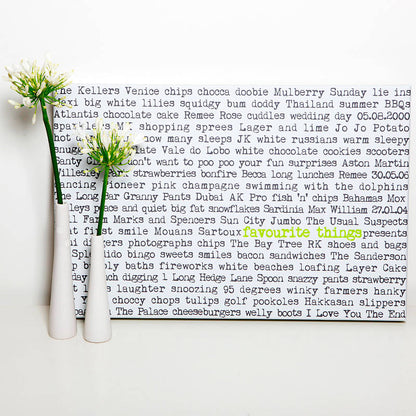 he Kellers Venice chips chocca doobie Mulberry Sunday lie ins
exi big white lilies squidgy bum doddy Thailand summer BBQs
Atlantis chocolate cake Remee Rose cuddles wedding day 05.08.2000
sparklers shopping sprees Lager and lime Jo Jo Potato
hot how many sleeps JK white russians warm sleepy
snugg late Vale do Lobo white chocolate cookies scooters
Santy Cl don't want to poo poo your fun surprises Aston Martin
Willesley strawberries bonfire Becca long lunches Remee 30.05.06
ancing pioneer pink champagne swimming with the dolphins
e Long Bar Granny Pants Dubai AK Pro fish 'n' chips Bahamas Mox
leys peace and quiet big fat snowflakes Sardinia Max William 27.01.04
ll Farm Marks and Spencers JJ Jumbo The Usual Suspects
t first smile Mouans Sartoux favourite things presents
diggers photographs chips The Bay Tree RK shoes and bags
Spl dido bingo sweets smiles bacon sandwiches The Sanderson
bbly baths fireworks white beaches loafing Layer Cake
nch digging 1 Long Hedge Lane Spoon snazzy pants strawberry
laughter snoozing 95 degrees winky farmers hanky
choccy chops tulips golf pookoles Hakkasan slippers
n The Palace cheeseburgers welly boots I Love You The End